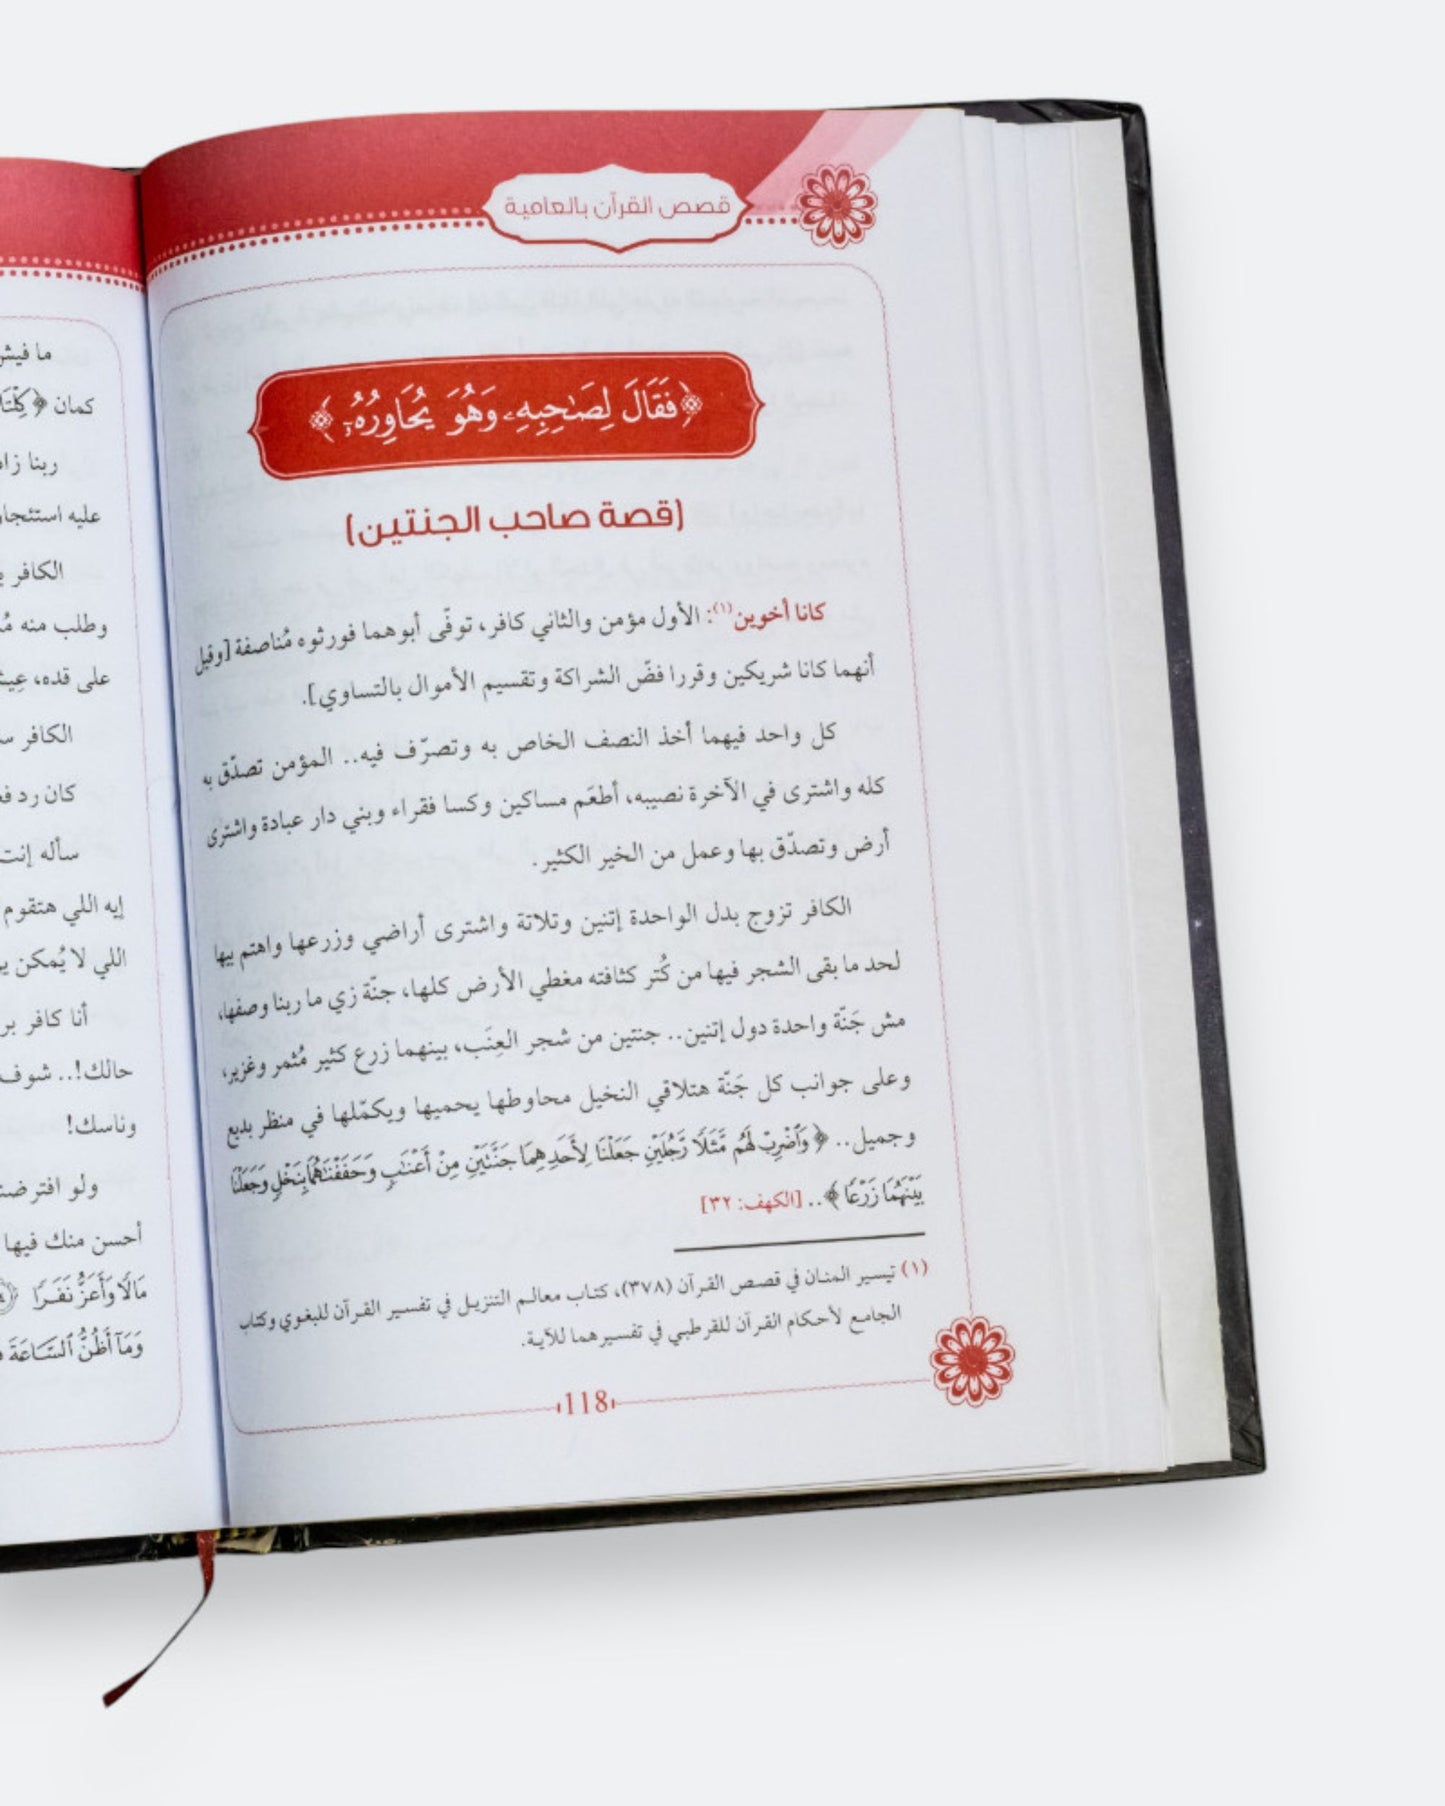 قصص القرآن بالعامية
﴿فَقَالَ لِصَٰحِبِهِۦ وَهُوَ يُحَاوِرُهُۥ﴾
(قصة صاحب الجنتين)
كانا أخوين(١): الأول مؤمن والثاني كافر، توفّى أبوهما فورثوه مُناصفة [وقيل
أنهما كانا شريكين وقررا فضّ الشراكة وتقسيم الأموال بالتساوي].
كل واحد فيهما أخذ النصف الخاص به وتصرّف فيه.. المؤمن تصدّق به
كله واشترى في الآخرة نصيبه، أطعَم مساكين وكسا فقراء وبني دار عبادة واشترى
أرض وتصدّق بها وعمل من الخير الكثير.
الكافر تزوج بدل الواحدة إتنين وتلاتة واشترى أراضي وزرعها واهتم بيها
لحد ما بقى الشجر فيها من كُتر كثافته مغطي الأرض كلها، جنّة زي ما ربنا وصفها،
مش جَنّة واحدة دول إتنين.. جنتين من شجر العِنَب، بينهما زرع كثير مُثمر وغزير،
وعلى جوانب كل جَنّة هتلاقي النخيل محاوطها يحميها ويكمّلها في منظر بديع
وجميل.. ﴿وَٱضْرِبْ لَهُم مَّثَلًا رَّجُلَيْنِ جَعَلْنَا لِأَحَدِهِمَا جَنَّتَيْنِ مِنْ أَعْنَٰبٍ وَحَفَفْنَٰهُمَا بِنَخْلٍ وَجَعَلْنَا
بَيْنَهُمَا زَرْعًا﴾.. [الكهف: ٣٢]
(١) تيسير المنان في قصص القرآن (٣٧٨)، كتاب معالم التنزيل في تفسير القرآن للبغوي وكتاب
الجامع لأحكام القرآن للقرطبي في تفسيرهما للآية.
118
ما فيش
كمان ﴿كِلْتَا
ربنا زاد
عليه استئجار
الكافر
وطلب منه
على قده،
الكافر
كان رد
سأله إنت
إيه اللي هتقوم
اللي لا يُمكن
أنا كافر
حالك!.. شوف
وناسك!
ولو
أحسن منك فيها
مَالًا وَأَعَزُّ نَفَرًا
وَمَآ أَظُنُّ ٱلسَّاعَةَ